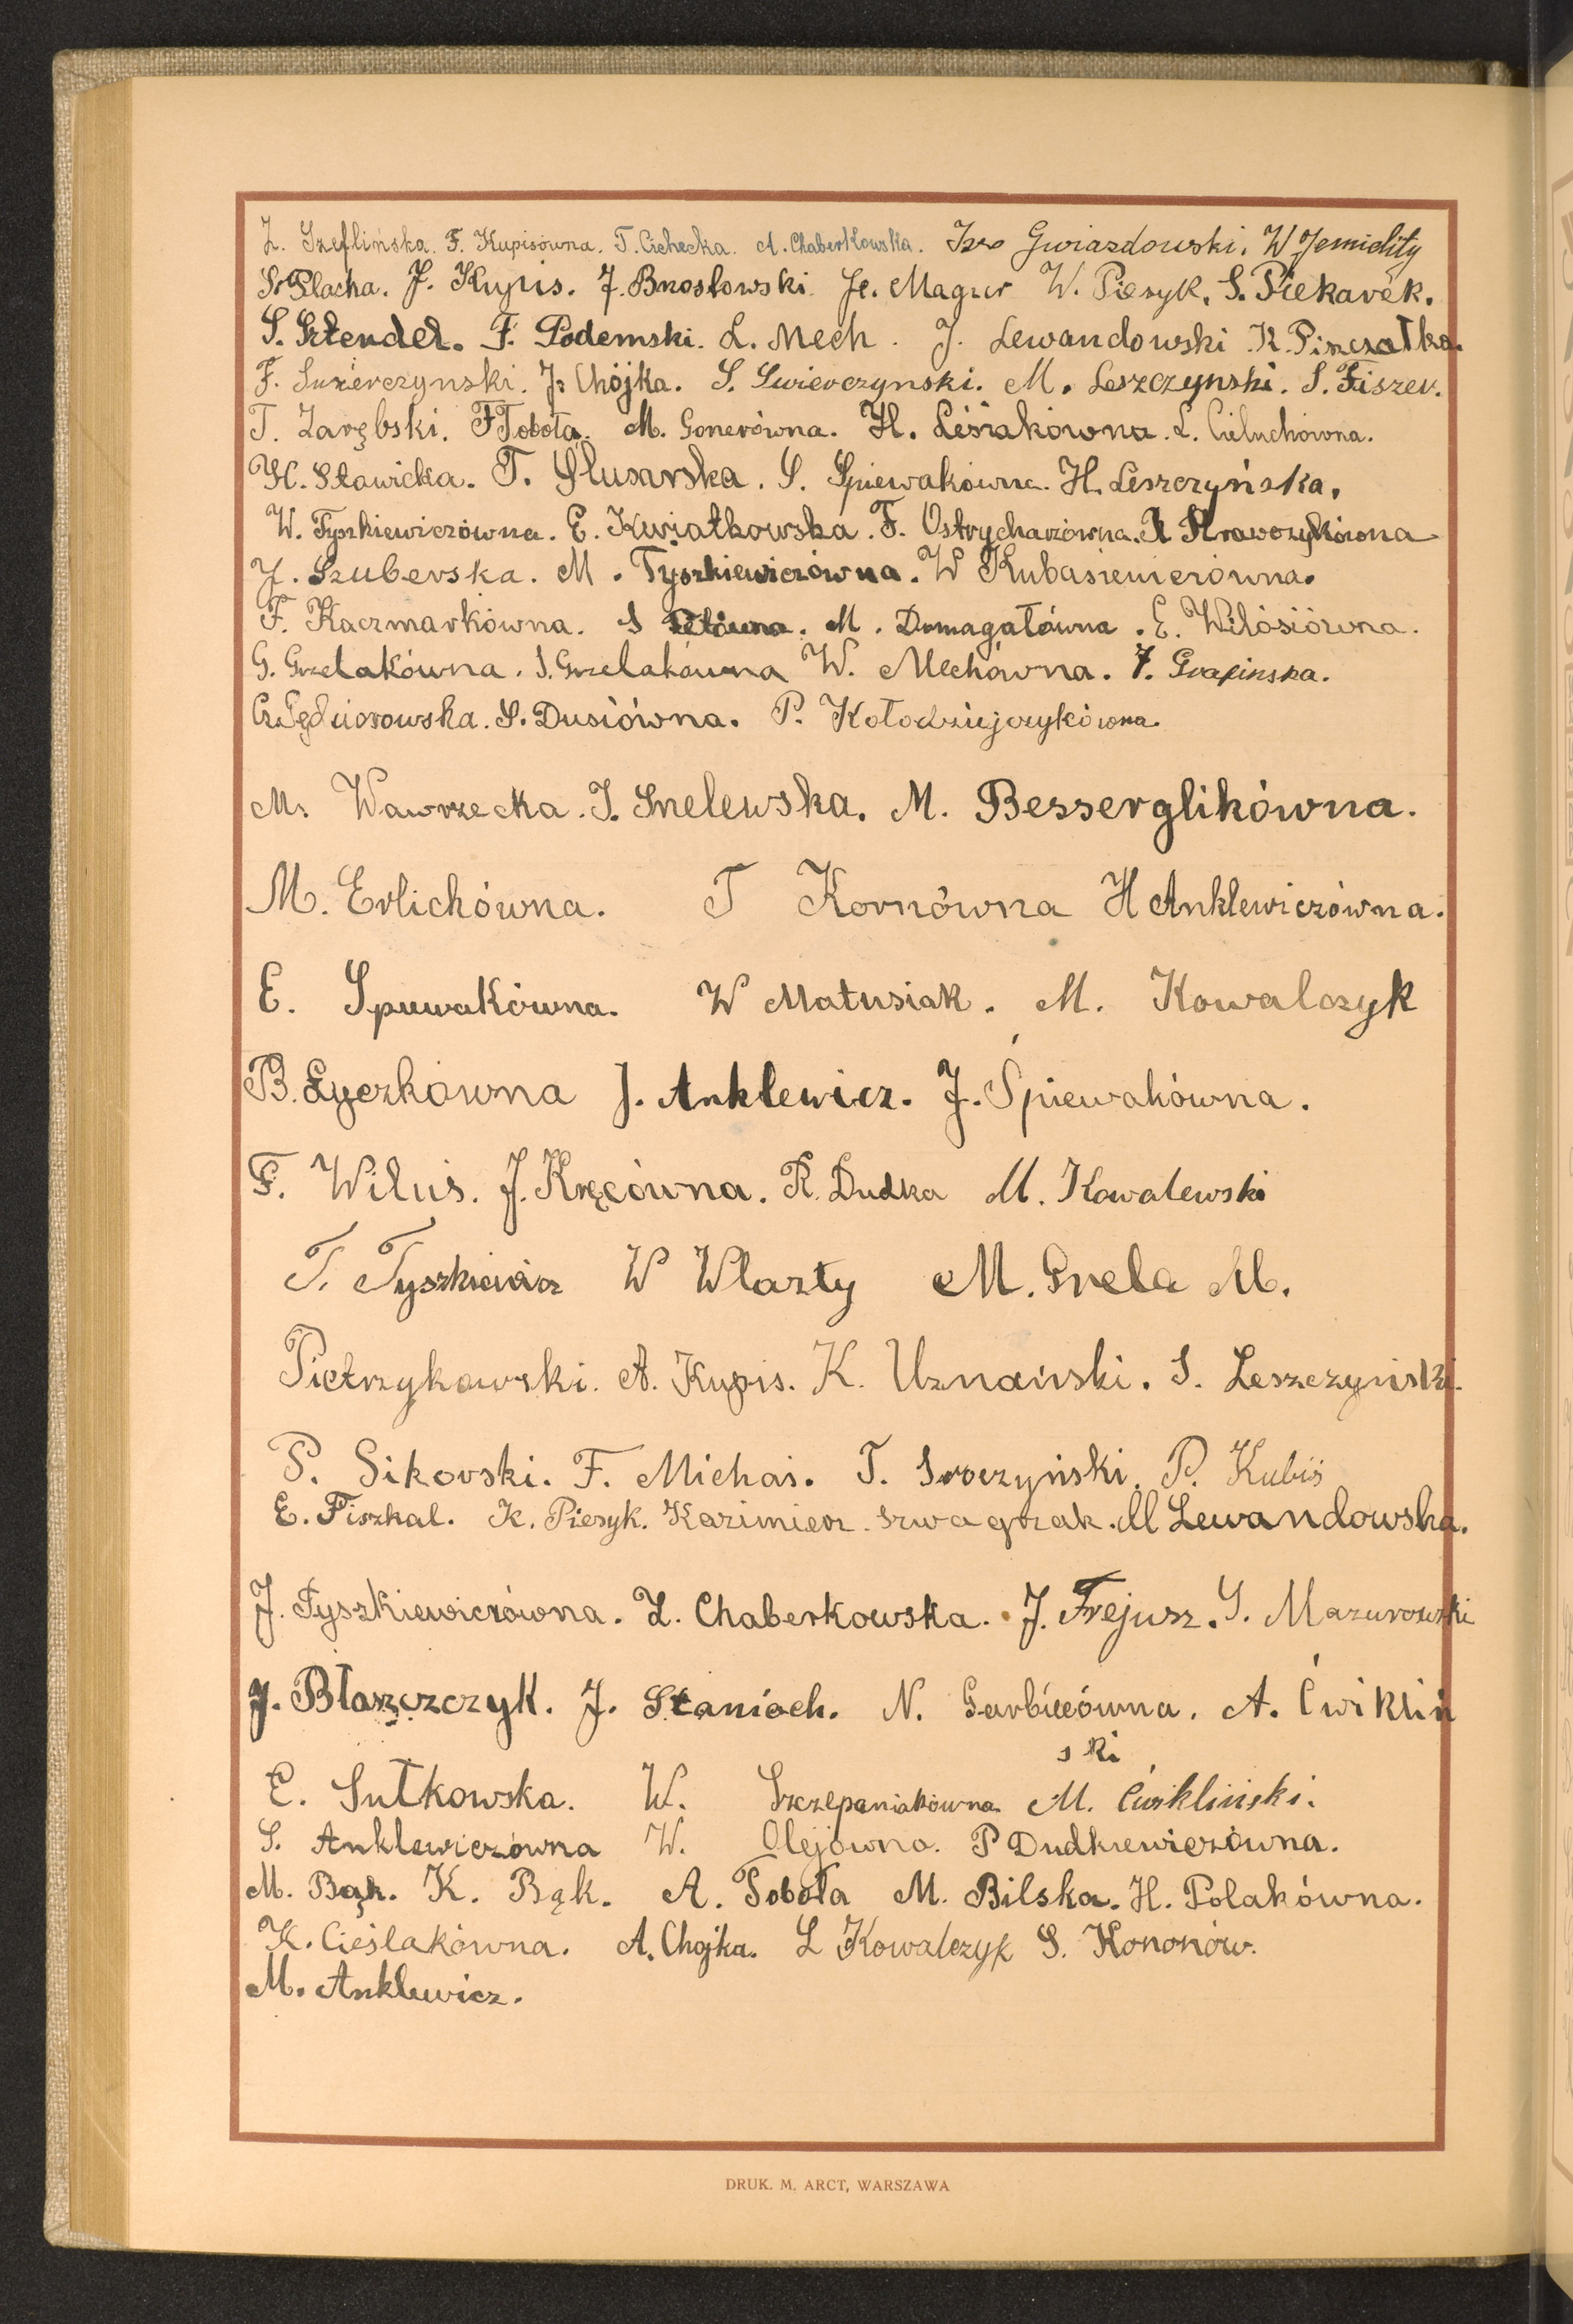 Z. Szeflińska. F. Kupisówna. T. Cichecka. A. Chaberkowska. Gwiazdowski. W Jemielity
St Placha. J. Kupis. J. Brzosłowski. Je. Magier W. Piesyk. S. Piekarek.
S. Sztendel. F. Podemski. L. Mech. J. Lewandowski K. Piszczałka.
F. Swierczynski. J. Chójka. S. Swierczynski. M. Leszczynski. S. Fiszer.
T. Zarębski. F Tobota. M. Gonerówna. H. Lésiakówna. L. Cieluchówna.
H. Stawicka. T. Slusarska. S. Spiewakówna. H. Leszczyńska.
W. Tyszkiewiczówna. E. Kwiatkowska. F. Ostrycharzówna. Krawczykówna
J. Szuberska. M. Tyszkiewiczówna. W Kubasiewiczówna.
F. Kaczmarkówna. S M. Domagałówna. E. Wilósiówna.
G. Grzelakówna. S. Grzelakówna W. Mechówna. J. Grapinska.
S. Dusiówna. P. Kołodziejczykówna.
M. Wawrzecka. J. Snelewska. M. Besserglikówna.
M. Erlichówna. T Kornówna H Anklewiczówna.
E. Spiewakówna. W Matusiak. M. Kowalczyk
B. Łyczkówna J. Anklewicz. J. Śpiewakówna.
F. Wiluś. J. Kręcówna. R. Dudka M. Kowalewski
T. Tyszkiewicz W Wlazły M. Grela M.
Pietrzykowski. A. Kupis. K. Uznański. S. Leszczyński.
P. Sikorski. F. Michaś. T. Sroczyński. P. Kubiś
E. Fiszkal. K. Piesyk. Kazimierz Szwagrzak. M Lewandowska.
J. Tyszkiewiczówna. Z. Chaberkowska. J. Frejusz. S. Mazurowski
J. Błaszczyk. J. Stanioch. N. A. Ćwikliń
ski
E. Sułkowska. W. Szczepaniakówna M. Ćwikliński.
S. Anklewiczówna W. Olejówna. P Dudkiewiczówna.
M. Bąk. K. Bąk. A. Sobota M. Bilska. H. Polakówna.
K. Cieślakówna. A. Chojka. L Kowalczyk S. Kononów.
M. Anklewicz.
DRUK. M. ARCT, WARSZAWA